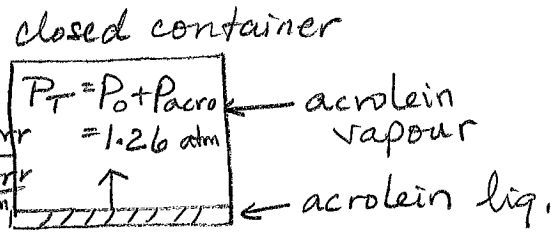 closed container
P_T = P_0 + P_acro
= 1.26 atm
acrolein
vapour
rr
rr
acrolein liq.